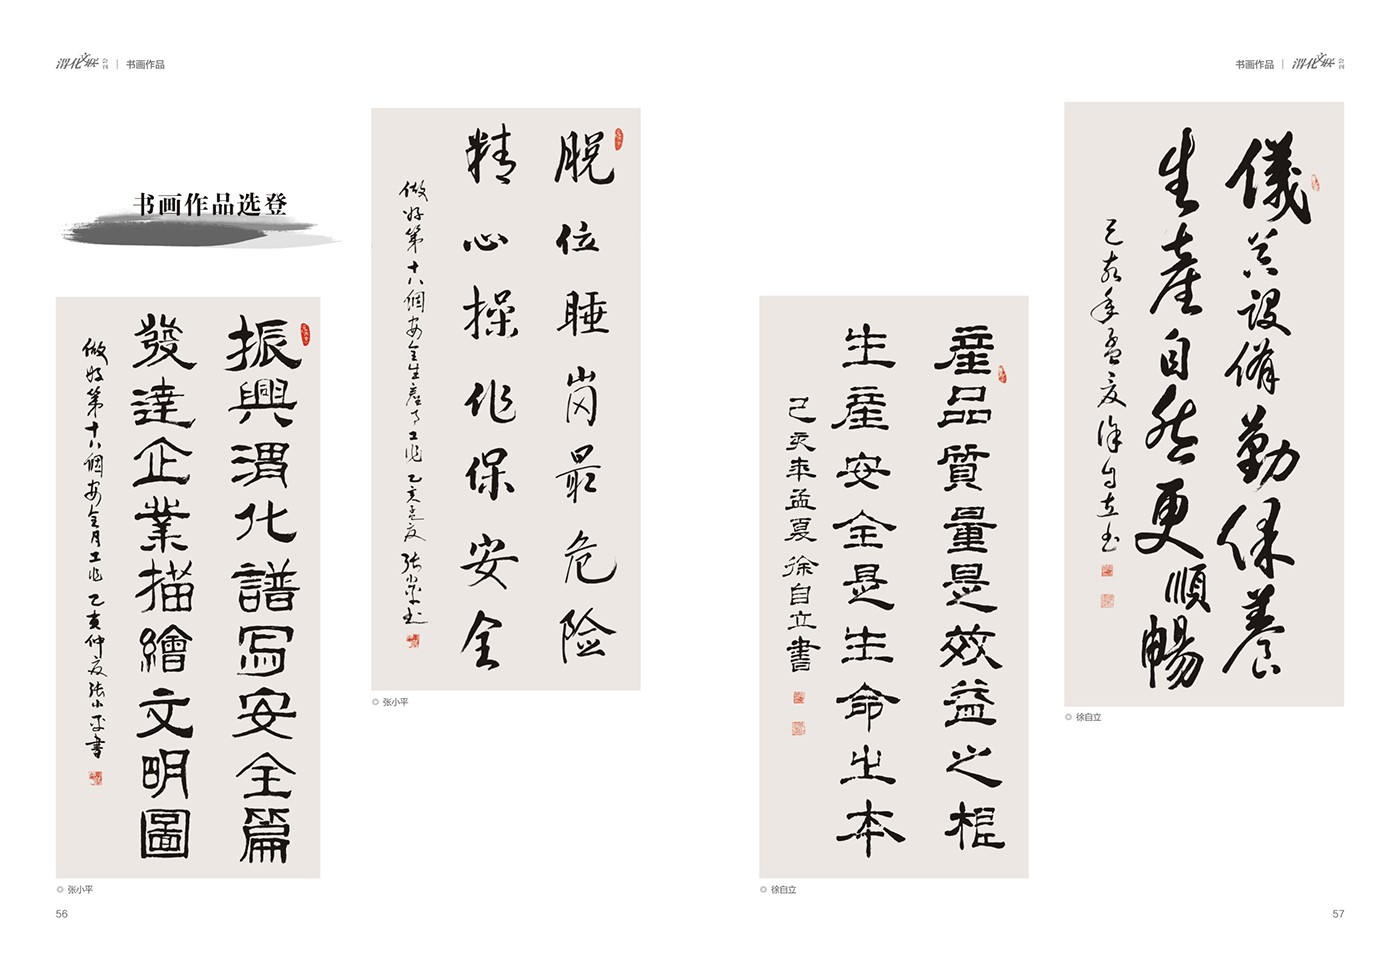 渭化文联 会刊 | 书画作品
书画作品选登
振興渭化譜写安全篇
發達企業描繪文明圖
做好第十八個安全月工作 乙亥仲夏 张小平書
◎ 张小平
脱位睡岗最危险
精心操作保安全
做好第十八個安全生產月工作 乙亥孟夏 张小平书
◎ 张小平
56
书画作品 | 渭化文联 会刊
産品質量是效益之根
生産安全是生命之本
己亥年孟夏 徐自立書
◎ 徐自立
儀器設俻勤保養
生産自然更順暢
己亥年孟夏徐自立书
◎ 徐自立
57